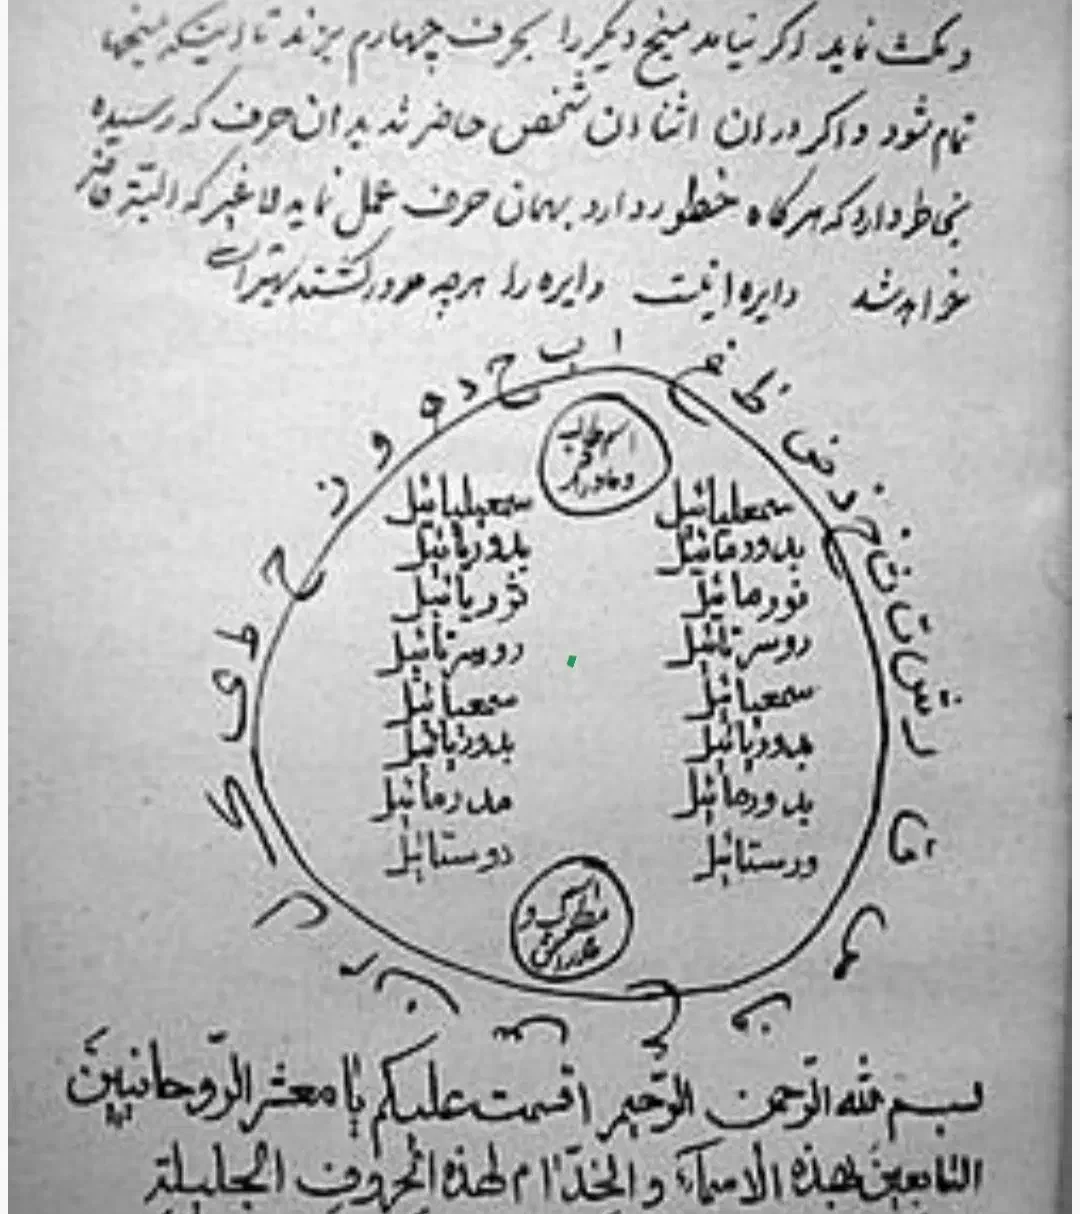 و مکث نماید اگر نیامد میخ دیگر را بحرف چهارم بزند تا اینکه میخها
تمام شود و اگر در ان اثنا ان شخص حاضر شد بد ان حرف که رسیده
بخاطر دارد که هر گاه خطور دارد بهمان حرف عمل نماید لا غیر که البته
خواهد شد دایره اینست دایره را هرچه مدور کشند بهتر است
ا ب ج د ه و ز ح ط ی ک ل م ن س ع ف ص ق ر ش ت ث خ ذ ض ظ غ
اسم طالب
و مادر
سمعلیائیل سمعیلیائیل
بدورمائیل بدوریائیل
نورمائیل نوریائیل
روسرتائیل روسرتائیل
سمعیائیل سمعیائیل
بدوریائیل بدوریائیل
بدورمائیل مدرمائیل
ورستائیل دوستائیل
اسم
مطلوب و
مادرش
بسم الله الرحمن الرحیم اقسمت علیکم یا معشر الروحانیین
التابعین لهذه الاسماء و الخدّام لهذه الحروف الجلیلة